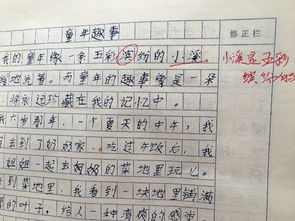 童年趣事
修正栏
我的童年像一条五彩缤纷的小溪
小溪是五彩
缤纷的
缓地流着。而童年的趣事像是一朵
深深珍藏在我的记忆中。
六岁那年,一个夏天的中午,我
回去到了奶奶家。吃过午饭后,我
姐姐一起去奶奶的菜地里玩儿。
到菜地里,我看到一块地里铺满
的叶子,给人一种清爽的感觉